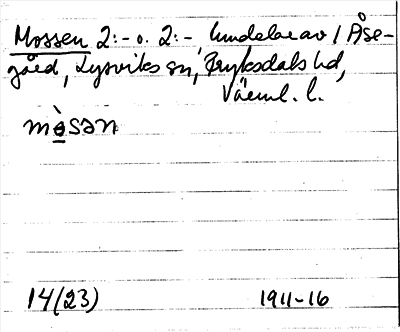 Mossen 2:- o. 2:-, lundelar av 1 Åse-
gård, Lysviks sn, Fryksdals hd,
Värml. l.
mòsən
14(23) 1911-16